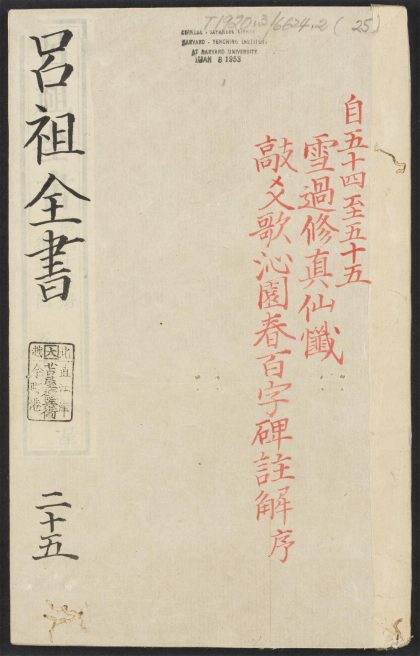 T 1920.3/6624.2 (25)
CHINESE - JAPANESE LIBRARY
HARVARD - YENCHING INSTITUTE
AT HARVARD UNIVERSITY
JAN 8 1953
自五十四至五十五
雪過修真仙懺
敲爻歌沁園春百字碑註解序
呂祖全書
二十五